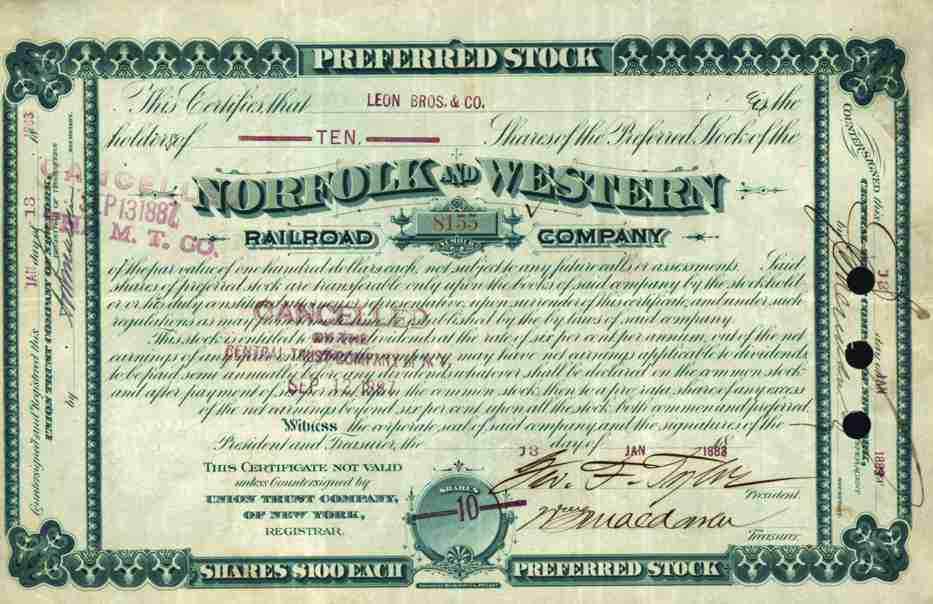 PREFERRED STOCK
This Certifies that LEON BROS. & CO. is the
holders of TEN. Shares of the Preferred Stock of the
NORFOLK AND WESTERN
8155
RAILROAD COMPANY
of the par value of one hundred dollars each, not subject to any future calls or assessments. Said
shares of preferred stock are transferable only upon the books of said company by the stockholder
or by duly constituted representative, upon surrender of this certificate, and under such
regulations as may established by the by laws of said company.
This stock dividend at the rate of six per cent. per annum, out of the net
earnings of any may have net earnings applicable to dividends
to be paid semi annually before any dividend shall be declared on the common stock
and after payment of six per cent. on the common stock, then to a pro rata share of any excess
of the net earnings beyond six per cent. upon all the stock, both common and preferred.
Witness the corporate seal of said company, and the signatures of the
President and Treasurer, the 13 day of JAN 1883
THIS CERTIFICATE NOT VALID
unless Countersigned by
UNION TRUST COMPANY,
OF NEW YORK,
REGISTRAR.
SHARES
10
Geo. F. Tyler
President.
Treasurer.
SHARES $100 EACH
PREFERRED STOCK
CANCELLED
SEP 13 1887
M. T. CO.
CANCELLED
BY THE
CENTRAL TRUST COMPANY OF N.Y.
SEP 13 1887
Countersigned and Registered this JAN day of 13 1883
UNION TRUST COMPANY OF NEW YORK
by
COUNTERSIGNED this 18 day of JAN 1883
CENTRAL TRUST COMPANY OF NEW YORK
by